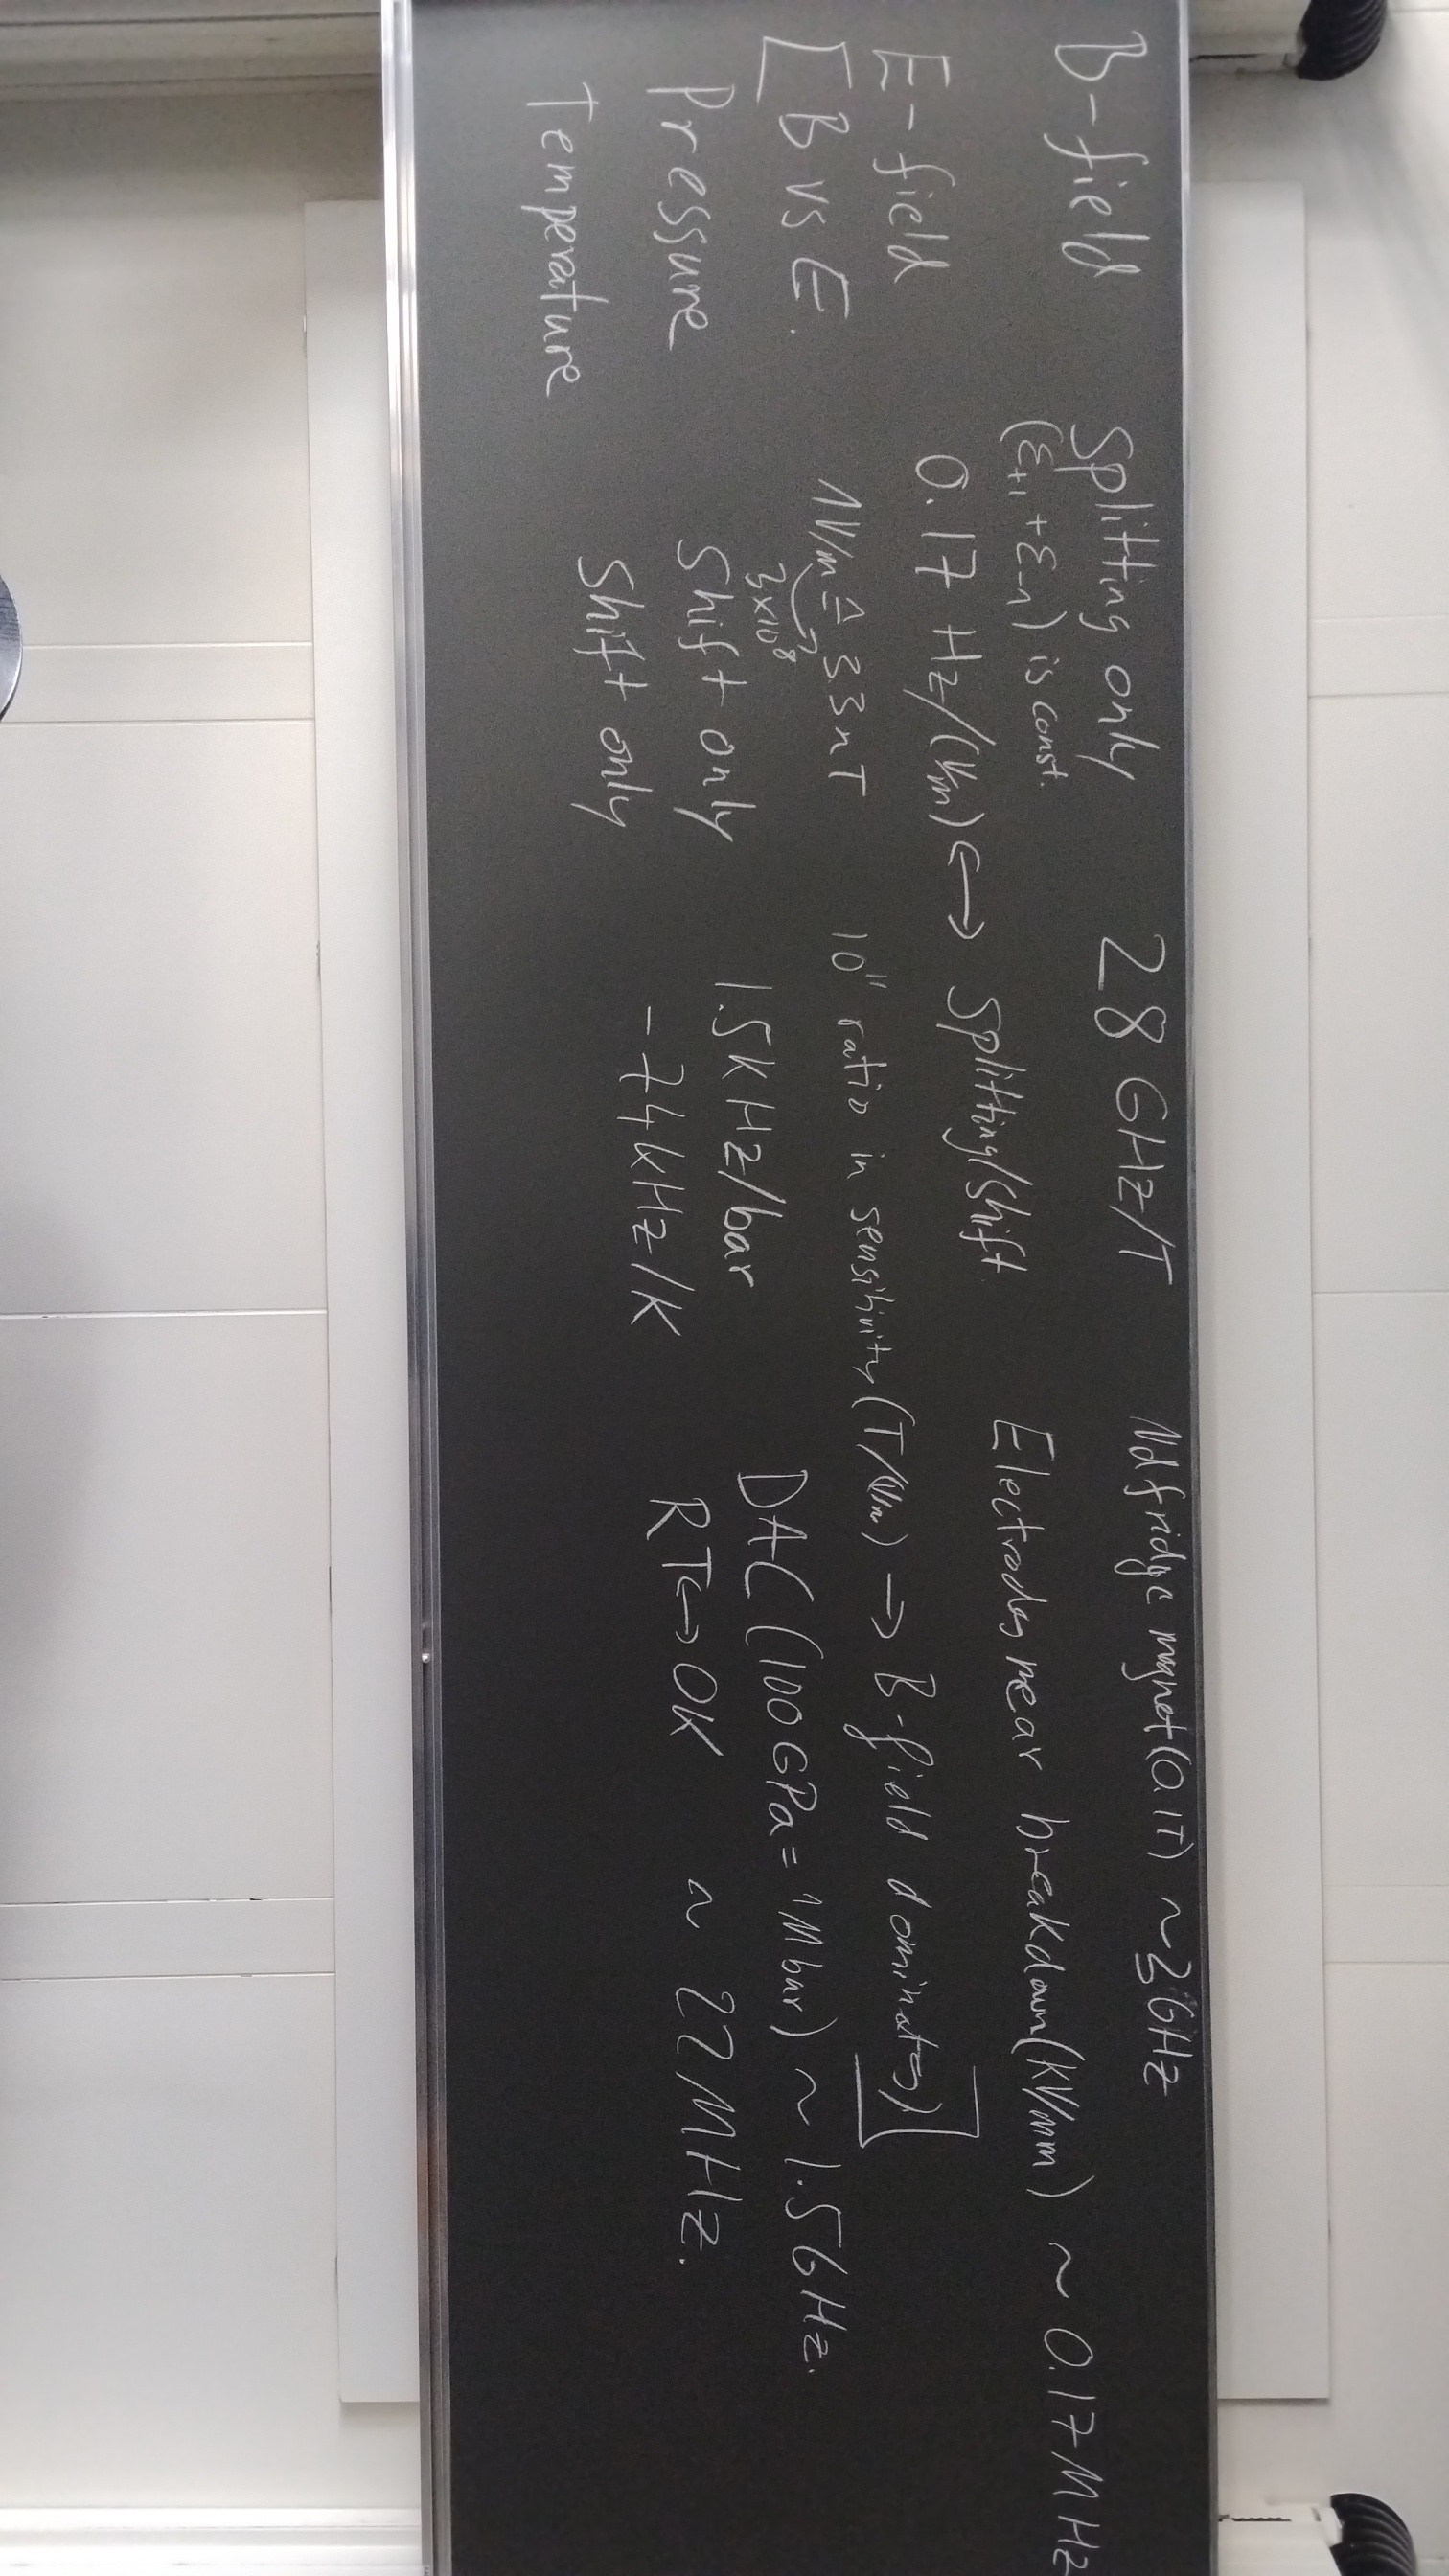 B-field Splitting only 28 GHz/T Nd fridge magnet (0.1T) ~3GHz
(ε+1 + ε-1) is const.
E-field 0.17 Hz/(V/m) ↔ Splitting/Shift Electrodes near breakdown (kV/mm) ~ 0.17 MHz
[B vs E. 1V/m ≙ 3.3nT 10¹¹ ratio in sensitivity (T/V/m) → B-field dominates]
3×10⁸
Pressure Shift only 1.5kHz/bar DAC (100GPa = 1Mbar) ~ 1.5GHz.
Temperature Shift only -74kHz/K RT→0K ~ 22MHz.